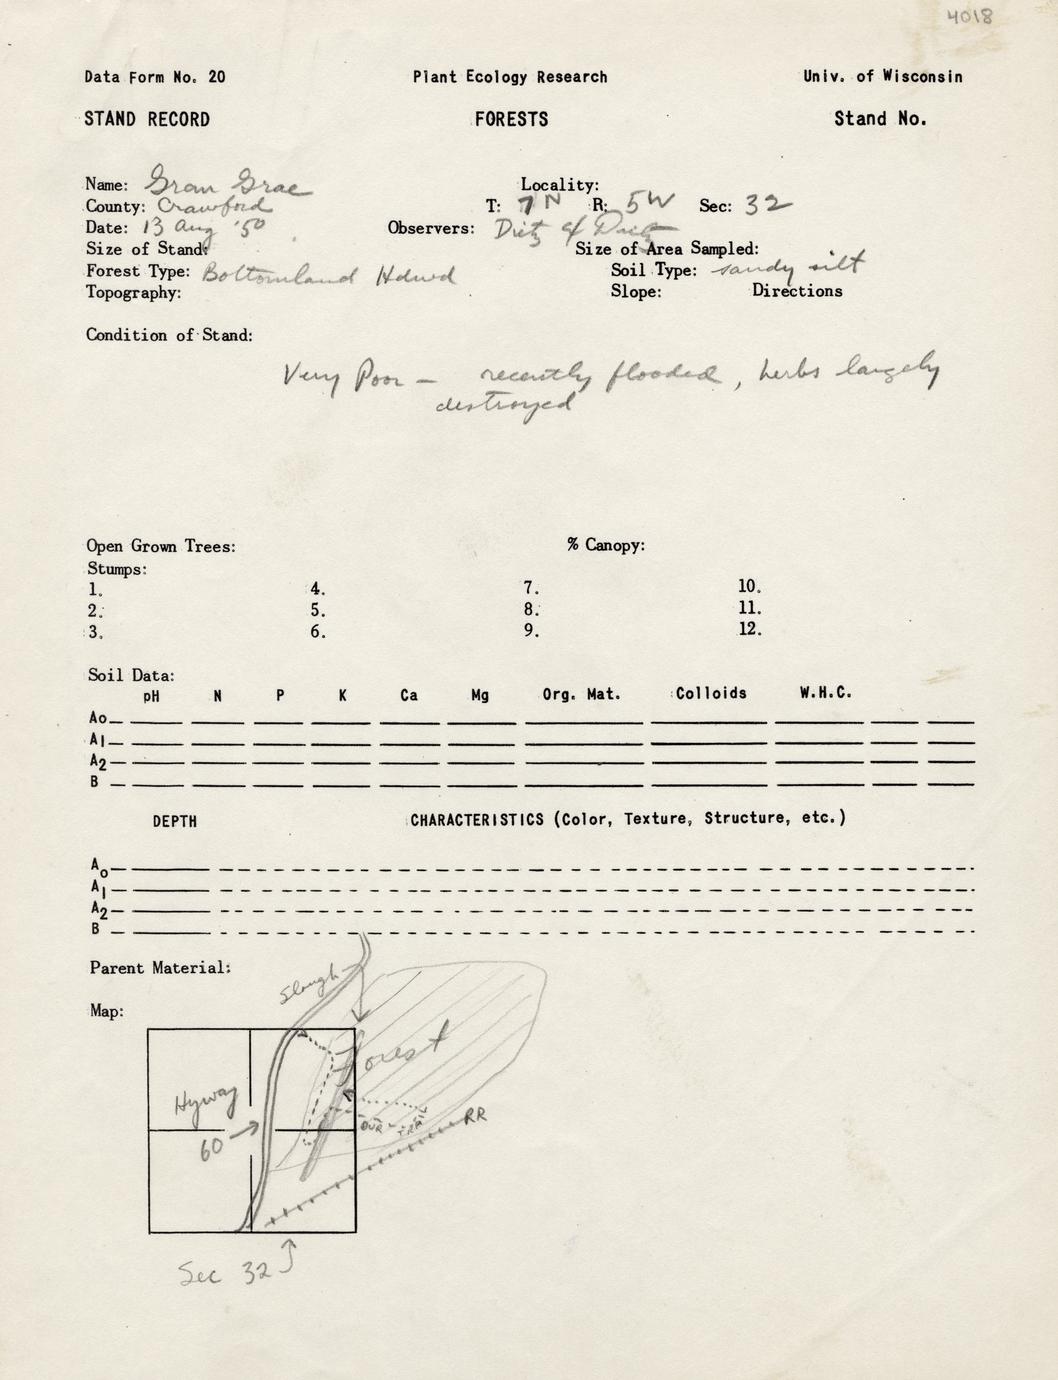 4018
Data Form No. 20 Plant Ecology Research Univ. of Wisconsin
STAND RECORD FORESTS Stand No.
Name: Gran Grae Locality:
County: Crawford T: 7N R: 5W Sec: 32
Date: 13 Aug '50 Observers: Dietz & Dietz
Size of Stand: Size of Area Sampled:
Forest Type: Bottomland Hdwd Soil Type: sandy silt
Topography: Slope: Directions
Condition of Stand:
Very Poor — recently flooded, herbs largely
destroyed
Open Grown Trees: % Canopy:
Stumps:
1. 4. 7. 10.
2. 5. 8. 11.
3. 6. 9. 12.
Soil Data:
pH N P K Ca Mg Org. Mat. Colloids W.H.C.
Ao
A1
A2
B
DEPTH CHARACTERISTICS (Color, Texture, Structure, etc.)
Ao
A1
A2
B
Parent Material:
Slough
Map:
Forest
Hyway
60
OUR TRA
RR
Sec 32